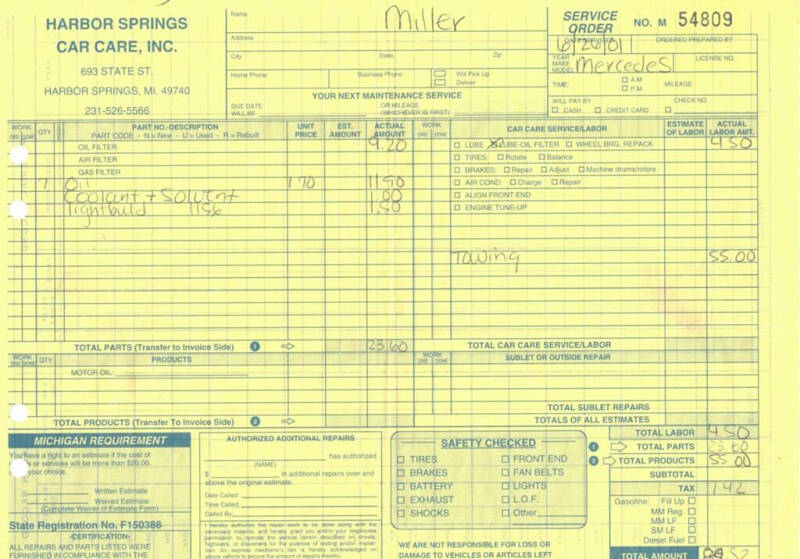 HARBOR SPRINGS
CAR CARE, INC.
693 STATE ST.
HARBOR SPRINGS, MI. 49740
231-526-5566
Name
Miller
Address
City State Zip
Home Phone Business Phone Will Pick Up
Deliver
YOUR NEXT MAINTENANCE SERVICE
DUE DATE WILL BE: OR MILEAGE (WHICHEVER IS FIRST)
SERVICE ORDER NO. M 54809
6/26/01 ORDERED PREPARED BY
YEAR MAKE MODEL Mercedes LICENSE NO.
TIME: A.M. P.M. MILEAGE
WILL PAY BY CASH CREDIT CARD CHECK NO.
WORK ORD DONE QTY PART NO.-DESCRIPTION PART CODE - N = New - U = Used - R = Rebuilt UNIT PRICE EST. AMOUNT ACTUAL AMOUNT
OIL FILTER 9.20
AIR FILTER
GAS FILTER
7 Oil 1.70 11 90
Coolant + Solvent 1.00
lightbulb 1156 1.50
TOTAL PARTS (Transfer to Invoice Side) 1 23.60
WORK ORD DONE CAR CARE SERVICE/LABOR ESTIMATE OF LABOR ACTUAL LABOR AMT.
LUBE LUBE-OIL FILTER WHEEL BRG. REPACK 4 50
TIRES: Rotate Balance
BRAKES: Repair Adjust Machine drums/rotors
AIR COND: Charge Repair
ALIGN FRONT END
ENGINE TUNE-UP
Towing 55.00
TOTAL CAR CARE SERVICE/LABOR
WORK ORD DONE QTY PRODUCTS
MOTOR OIL:
TOTAL PRODUCTS (Transfer To Invoice Side) 2
WORK ORD DONE SUBLET OR OUTSIDE REPAIR
TOTAL SUBLET REPAIRS
TOTALS OF ALL ESTIMATES
MICHIGAN REQUIREMENT
You have a right to an estimate if the cost of
s or services will be more than $20.00.
your choice.
Written Estimate
Waived Estimate
(Complete Waiver of Estimate Form)
State Registration No. F150388
-CERTIFICATION-
ALL REPAIRS AND PARTS LISTED WERE
FURNISHED IN COMPLIANCE WITH THE
AUTHORIZED ADDITIONAL REPAIRS
has authorized
(NAME)
$ in additional repairs over and
above the original estimate.
Date Called
Time Called
Called By
I hereby authorize the repair work to be done along with the
necessary material, and hereby grant you and/or your employees
permission to operate the vehicle herein described on streets,
highways, or elsewhere for the purpose of testing and/or inspec-
tion. An express mechanic's lien is hereby acknowledged on
above vehicle to secure the amount of repairs thereto.
SAFETY CHECKED
TIRES FRONT END
BRAKES FAN BELTS
BATTERY LIGHTS
EXHAUST L.O.F.
SHOCKS Other
WE ARE NOT RESPONSIBLE FOR LOSS OR
DAMAGE TO VEHICLES OR ARTICLES LEFT
TOTAL LABOR 4 50
1 TOTAL PARTS 23 60
2 TOTAL PRODUCTS 55 00
SUBTOTAL
TAX 1 42
Gasoline: Fill Up
MM Reg.
MM LF
SM LF
Diesel Fuel
TOTAL AMOUNT